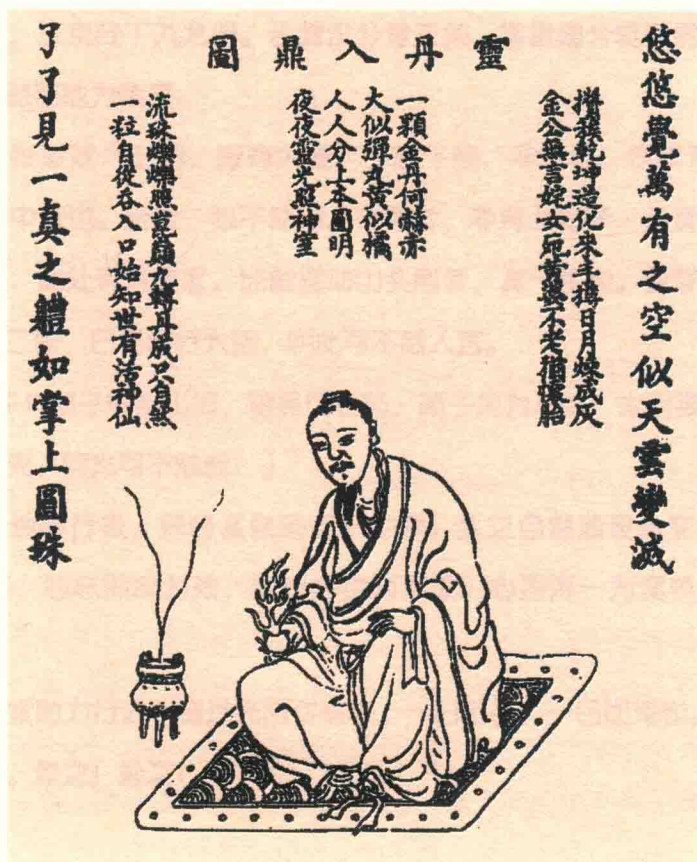 靈丹入鼎圖
悠悠覺萬有之空似天雲變滅
攢簇乾坤造化來手摶日月煉成灰
金公無言姹女死黃婆不老猶懷胎
一顆金丹何赫赤
大似彈丸黃似橘
人人分上本圓明
夜夜靈光照神室
流珠爍爍照崑巔九轉丹成只自然
一粒自從吞入口始知世有活神仙
了了見一真之體如掌上圓珠